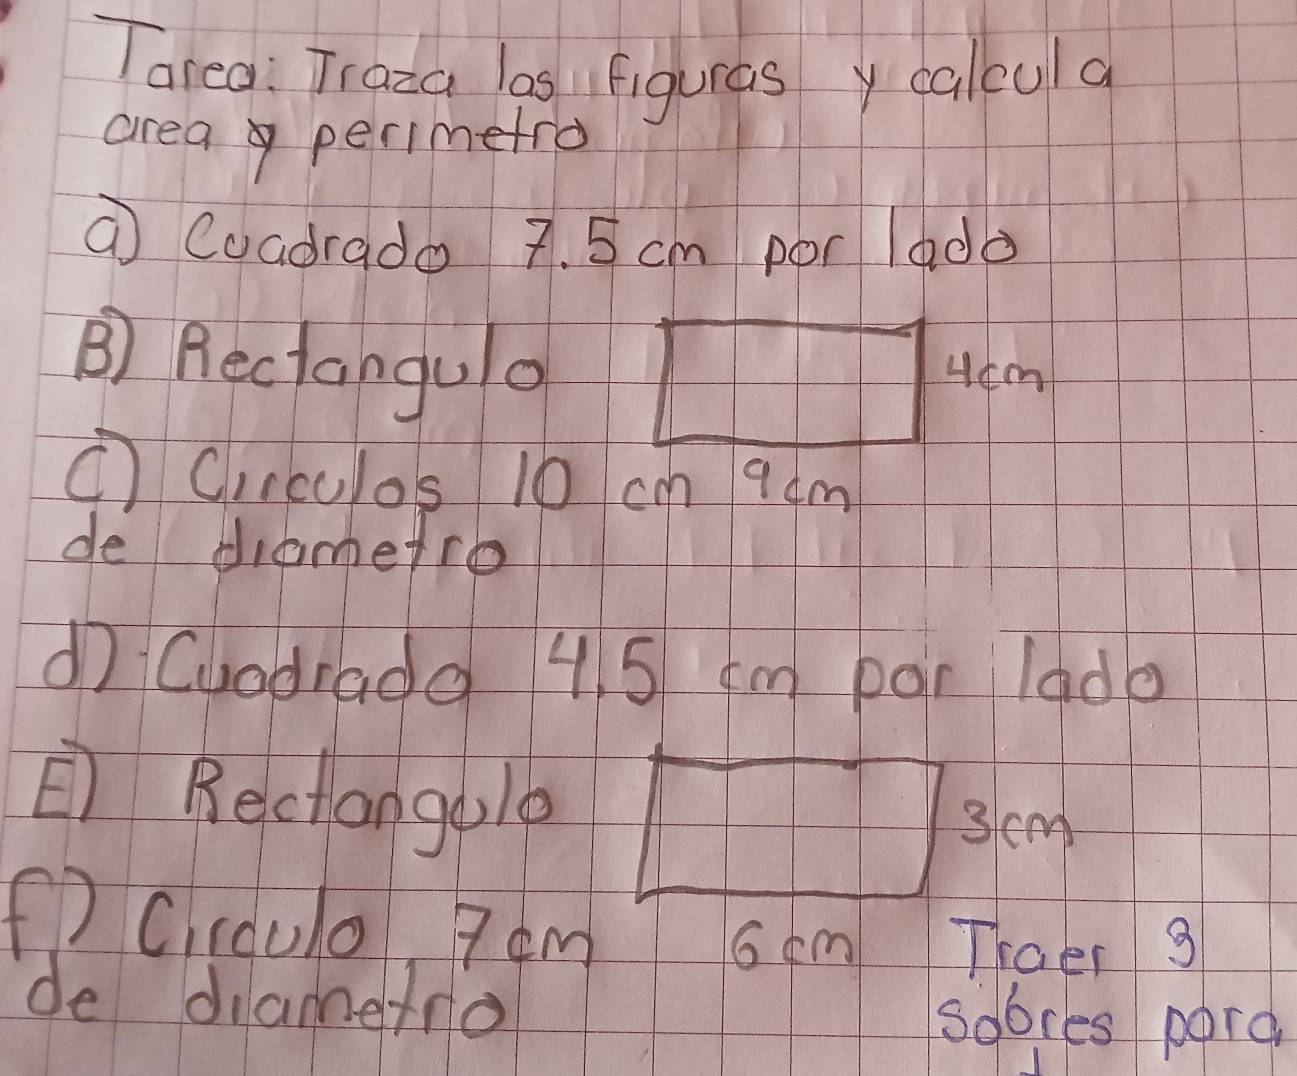 Tarea: Traza las figuras y calcula
area y perimetro
a) Cuadrado 7.5 cm por lado
B) Rectangulo 4cm
C) Circulos 10 cm 9cm
de diametro
d) Cuadrado 4.5 cm por lado
E) Rectangulo 3cm
f) Circulo 7cm 6cm Traer 3
de diametro sobres para